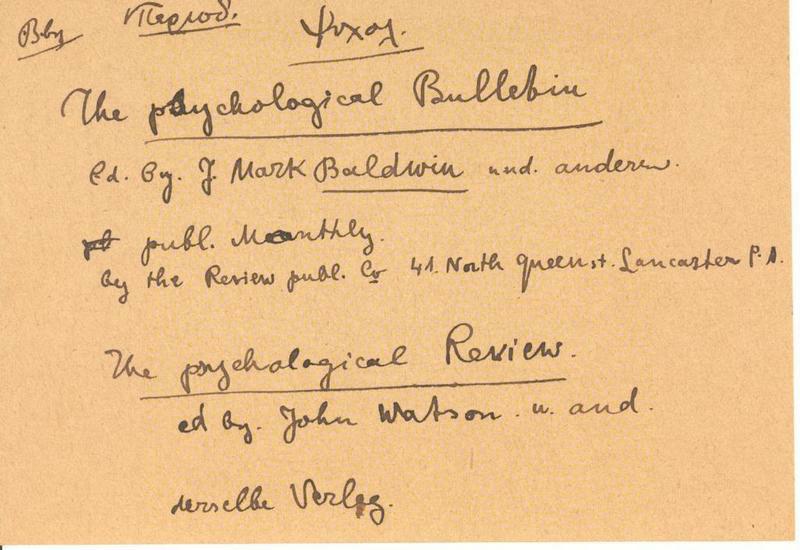 Bby Период. Ψυχολ.
The psychological Bulletin
Ed. by. J. Mark Baldwin und. anderen.
publ. Monthly.
by the Review publ. Co 41. North queen st. Lancaster P.A.
The psychological Review.
ed by. John Watson. u. and.
derselbe Verlag.